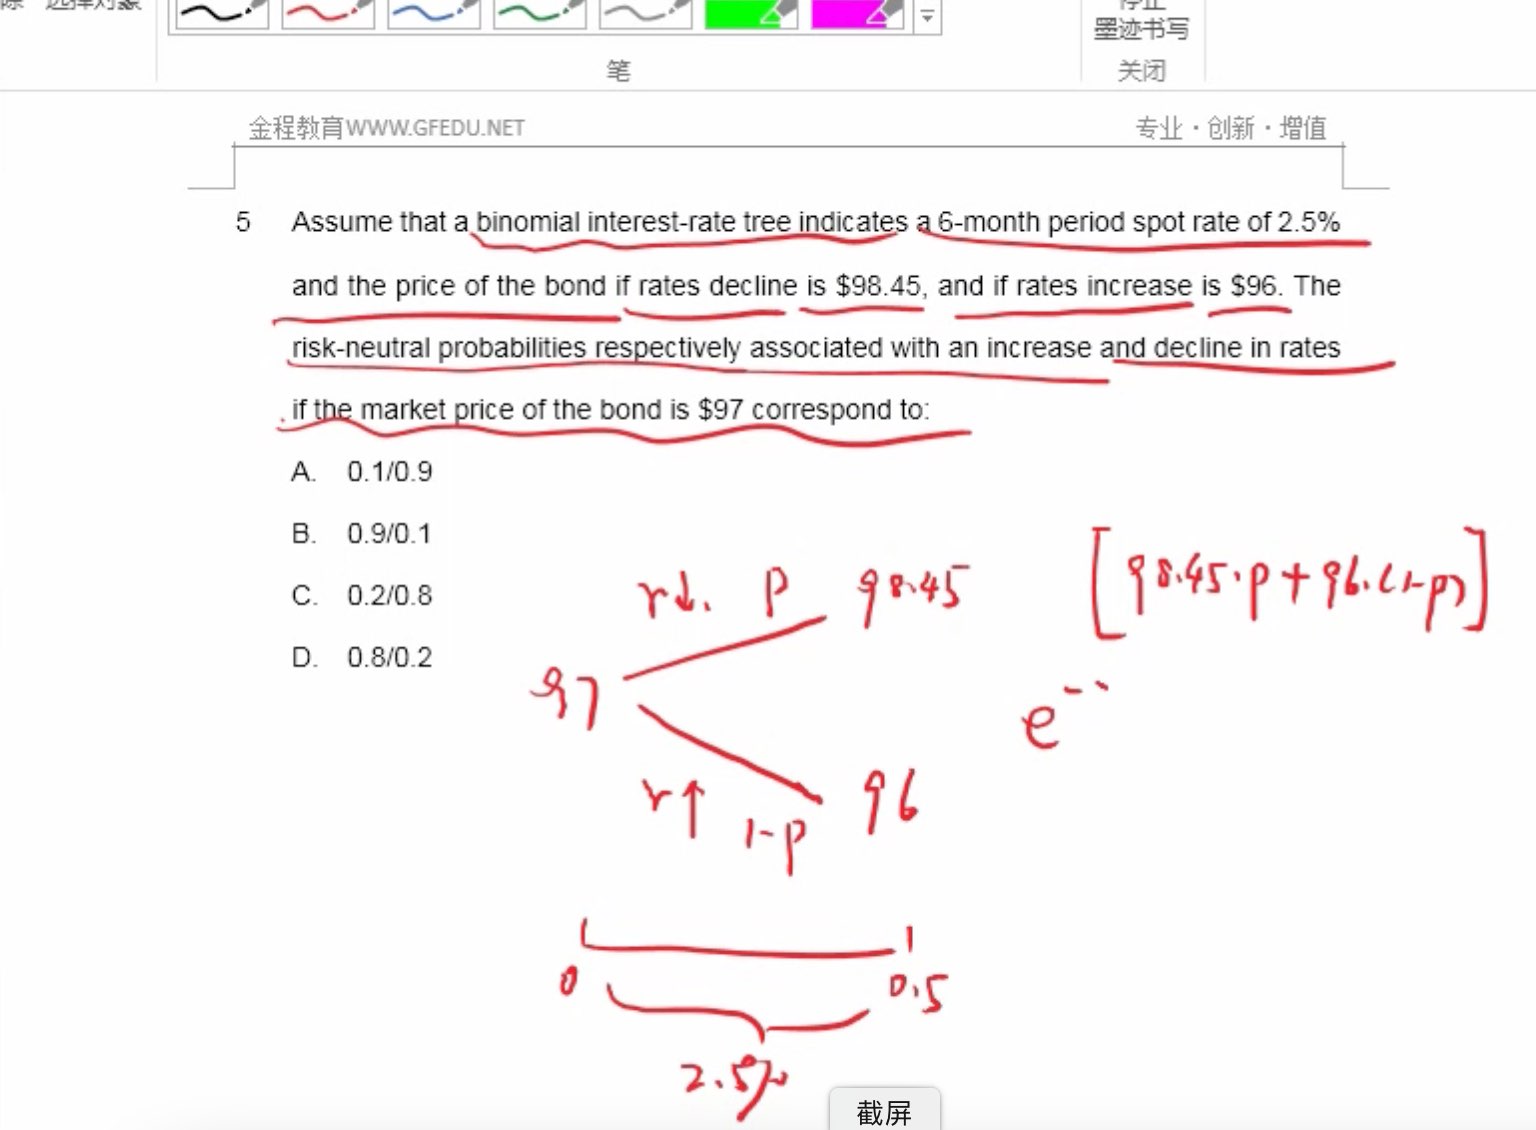 选择对象
停止
墨迹书写
笔
关闭
金程教育WWW.GFEDU.NET
专业·创新·增值
5 Assume that a binomial interest-rate tree indicates a 6-month period spot rate of 2.5%
and the price of the bond if rates decline is $98.45, and if rates increase is $96. The
risk-neutral probabilities respectively associated with an increase and decline in rates
if the market price of the bond is $97 correspond to:
A. 0.1/0.9
B. 0.9/0.1
C. 0.2/0.8
D. 0.8/0.2
r↓. p 98.45
[98.45·p+96·(1-p)]
97
e
r↑ 1-p 96
0 0.5
2.5%
截屏